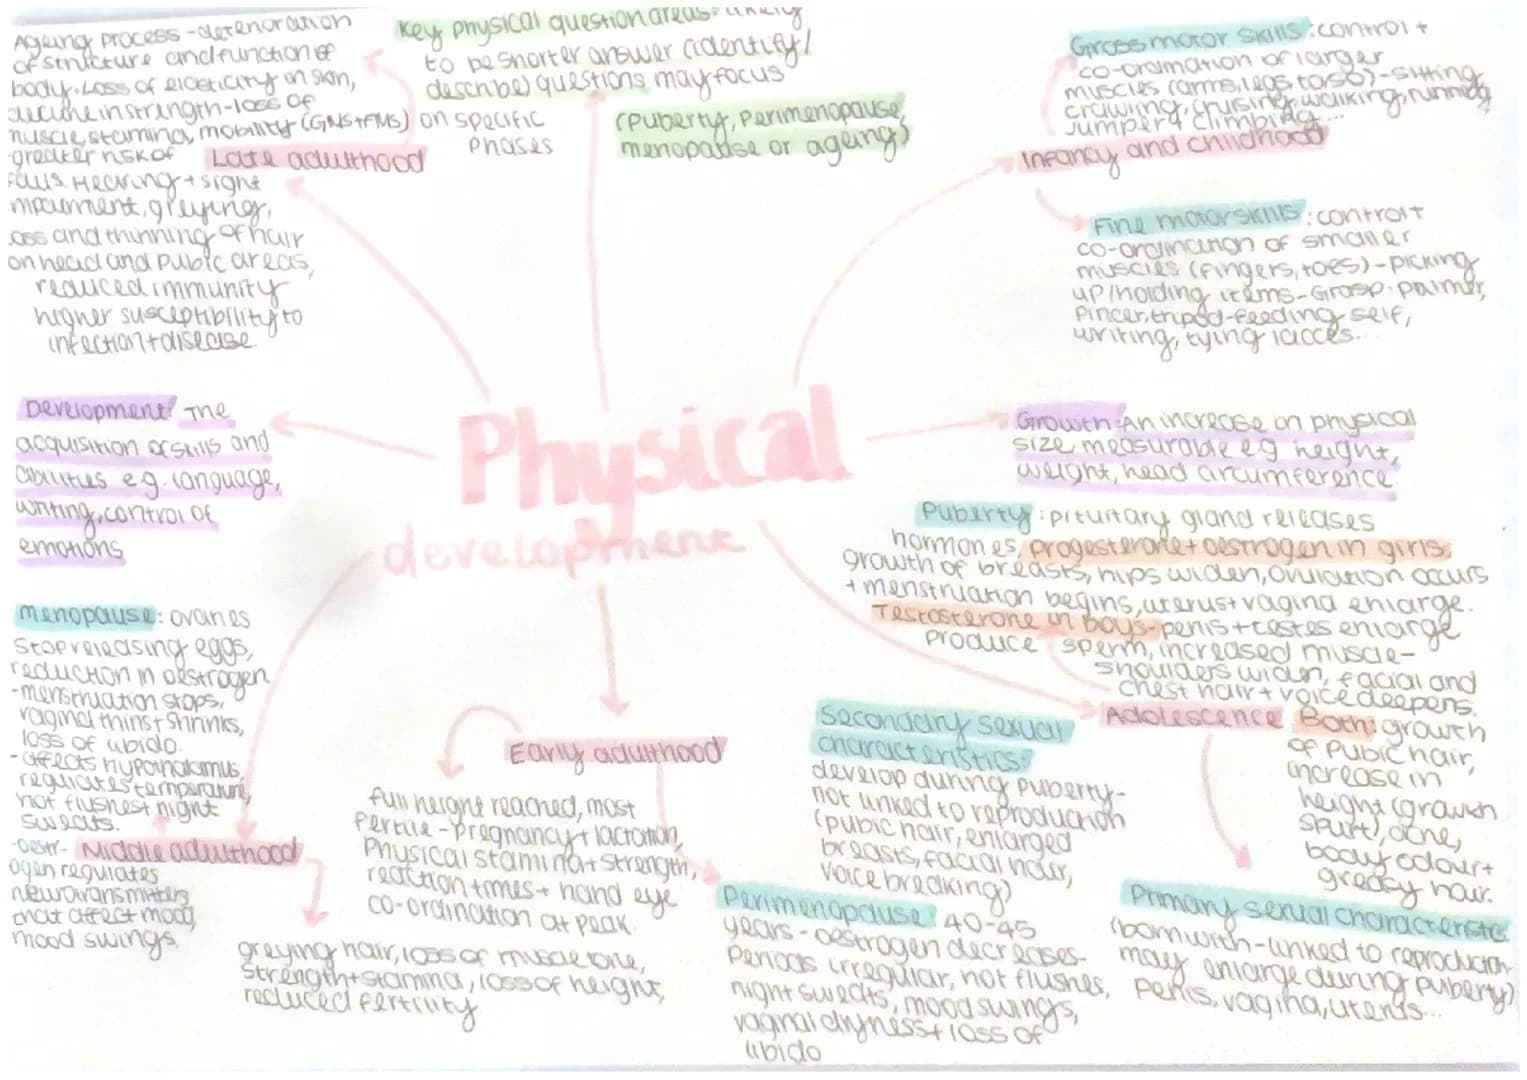 Ageing process - deterioration
of structure and function of
body. Loss of elasticity on skin,
decline in strength - loss of
muscle, stamina, mobility (GMS + FMS)
greater risk of
falls. Hearing + sight
impairment, greying,
loss and thinning of hair
on head and pubic areas,
reduced immunity
higher susceptibility to
infection + disease
Late adulthood
Key physical question areas: likely
to be shorter answer (identify/
describe) questions may focus
on specific
phases
(puberty, perimenopause,
menopause or ageing)
Gross motor skills: control +
co-ordination of larger
muscles (arms, legs, torso) - sitting
crawling, cruising, walking, running
jumping, climbing...
Infancy and childhood
Fine motor skills: control +
co-ordination of smaller
muscles (fingers, toes) - picking
up/holding items - Grasp: palmer,
pincer, tripod - feeding self,
writing, tying lacces...
Development: The
acquisition of skills and
abilities e.g. language,
writing, control of
emotions
Physical
development
Growth: An increase in physical
size, measurable eg height,
weight, head circumference
Puberty: pituitary gland releases
hormones, progesterone + oestrogen in girls,
growth of breasts, hips widen, ovulation occurs
+ menstruation begins, uterus + vagina enlarge.
Testosterone in boys - penis + testes enlarge
produce sperm, increased muscle -
shoulders widen, facial and
chest hair + voice deepens.
Adolescence
Both: growth
of pubic hair,
increase in
height (growth
spurt), acne,
body odour +
greasy hair.
Menopause: ovaries
stop releasing eggs,
reduction in oestrogen
- menstruation stops,
vaginal thins + shrinks,
loss of libido.
- affects hypothalamus,
regulates temperature,
hot flushes + night
sweats.
- oestr-
ogen regulates
neurotransmitters
that affect mood,
mood swings
Middle adulthood
greying hair, loss of muscle tone,
strength + stamina, loss of height,
reduced fertility
Early adulthood
full height reached, most
fertile - pregnancy + lactation,
Physical stamina + strength,
reaction times + hand eye
co-ordination at peak.
Secondary sexual
characteristics:
develop during puberty -
not linked to reproduction
(pubic hair, enlarged
breasts, facial hair,
voice breaking)
Perimenopause: 40-45
years - oestrogen decreases
Periods irregular, hot flushes,
night sweats, mood swings,
vaginal dryness + loss of
libido
Primary sexual characteristic:
(born with - linked to reproduction
may enlarge during puberty)
Penis, vagina, uterus...